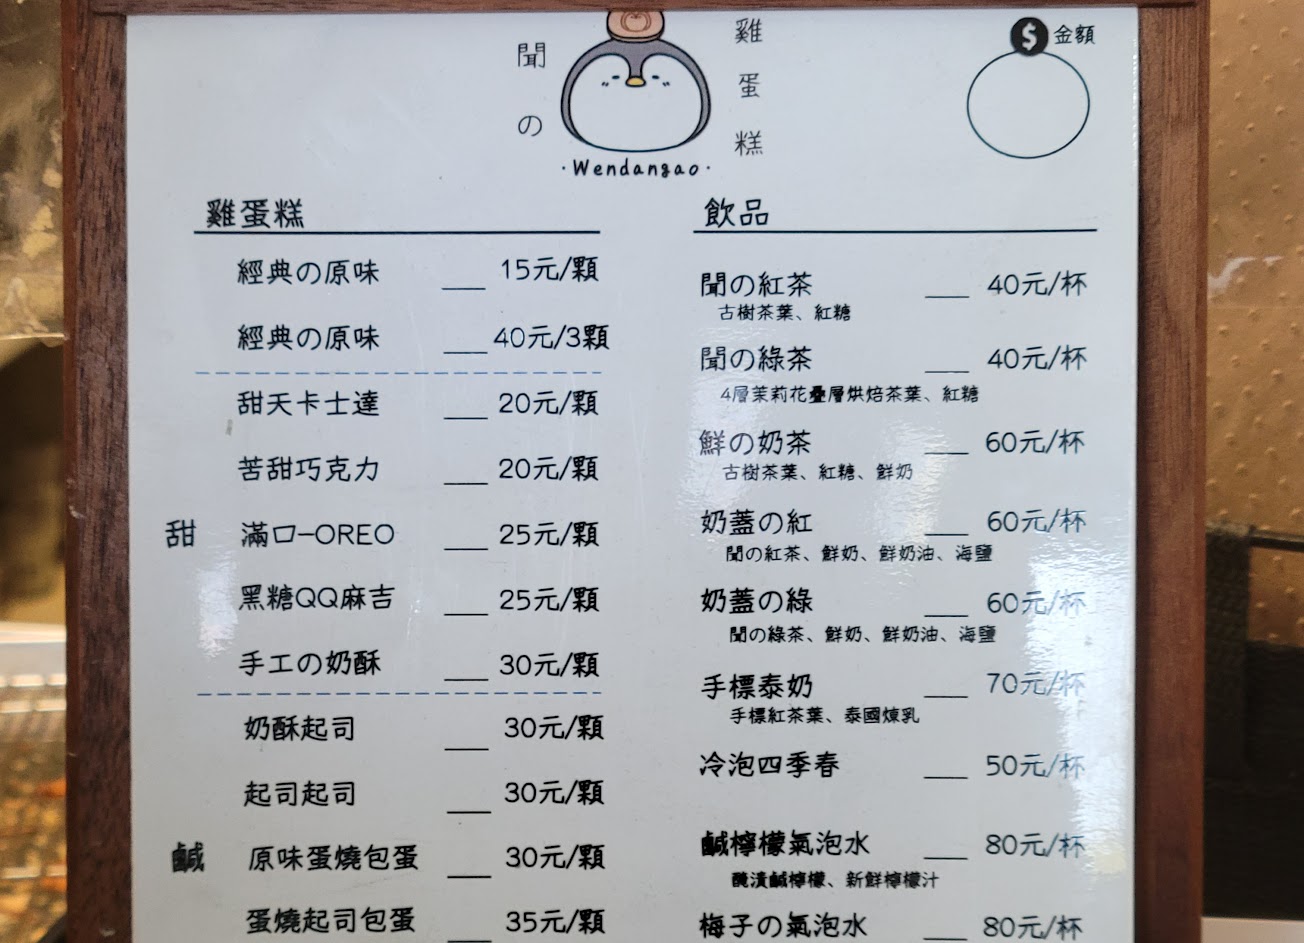 聞の
雞蛋糕
·Wendangao·
$ 金額
雞蛋糕
經典の原味 ___ 15元/顆
經典の原味 ___ 40元/3顆
甜天卡士達 ___ 20元/顆
苦甜巧克力 ___ 20元/顆
甜 滿口-OREO ___ 25元/顆
黑糖QQ麻吉 ___ 25元/顆
手工の奶酥 ___ 30元/顆
奶酥起司 ___ 30元/顆
起司起司 ___ 30元/顆
鹹 原味蛋燒包蛋 ___ 30元/顆
蛋燒起司包蛋 ___ 35元/顆
飲品
聞の紅茶 ___ 40元/杯
古樹茶葉、紅糖
聞の綠茶 ___ 40元/杯
4層茉莉花疊層烘焙茶葉、紅糖
鮮の奶茶 ___ 60元/杯
古樹茶葉、紅糖、鮮奶
奶蓋の紅 ___ 60元/杯
聞の紅茶、鮮奶、鮮奶油、海鹽
奶蓋の綠 ___ 60元/杯
聞の綠茶、鮮奶、鮮奶油、海鹽
手標泰奶 ___ 70元/杯
手標紅茶葉、泰國煉乳
冷泡四季春 ___ 50元/杯
鹹檸檬氣泡水 ___ 80元/杯
醃漬鹹檸檬、新鮮檸檬汁
梅子の氣泡水 ___ 80元/杯